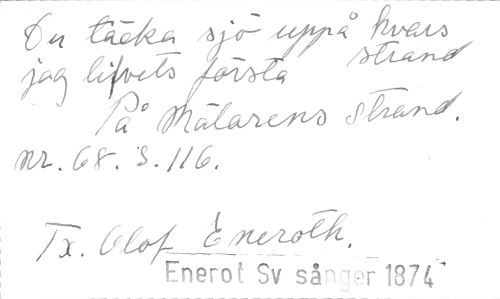 Du täcka sjö uppå hvars
jag lifvets första strand
På Mälarens Strand.
nr. 68. S. 116.
Tx. Olof Eneroth.
Enerot Sv sånger 1874